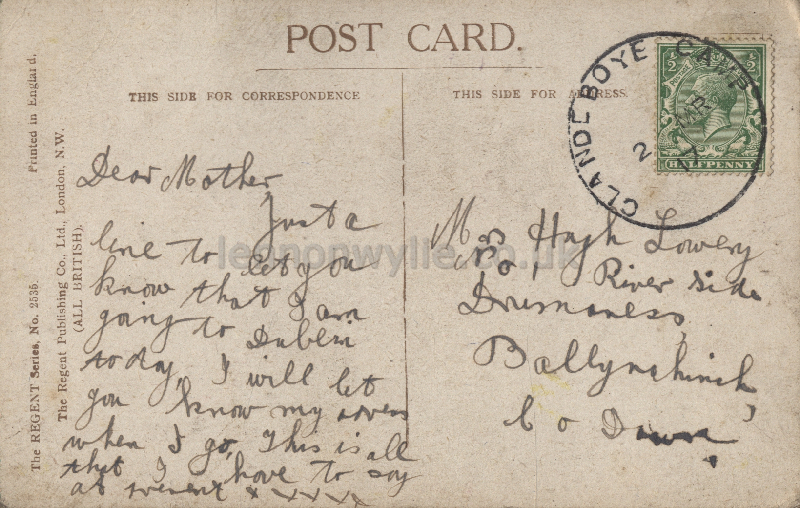 POST CARD.
THIS SIDE FOR CORRESPONDENCE
THIS SIDE FOR ADDRESS.
CLANDEBOYE CAMP
2 MR 17
HALFPENNY
Dear Mother,
Just a
line to let you
know that I am
going to Dublin
today, I will let
you know my adress
when I go, This is all
that I have to say
at present x x x x x
Mrs Hugh Lowery
No 1, River Side
Drumaness,
Ballynahinch,
Co Down.
The REGENT Series, No. 2535. Printed in England.
The Regent Publishing Co., Ltd., London, N.W.
(ALL BRITISH).
lennonwylie.co.uk